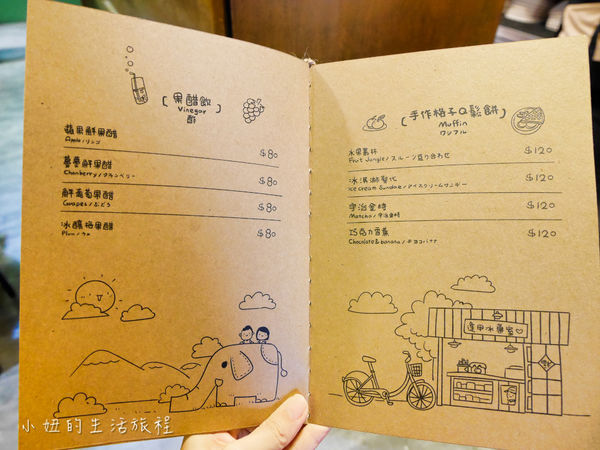 [ 果醋飲 ]
Vinegar
酢
蘋果鮮果醋 $80
Apple/リンゴ
蔓蔓鮮果醋 $80
Chanberry/クランベリー
鮮葡萄果醋 $80
Grapes/ぶどう
冰釀梅果醋 $80
Plum/ウメ
[ 手作格子Q鬆餅 ]
Muffin
ワッフル
水果叢林 $120
Fruit Jungle/フルーツ盛り合わせ
冰淇淋聖代 $120
Ice cream Sundae/アイスクリームサンデー
宇治金時 $120
Matcha/宇治金時
巧克力香蕉 $120
Chocolate & banana/チョコバナナ
逢甲冰菓室
小妞的生活旅程